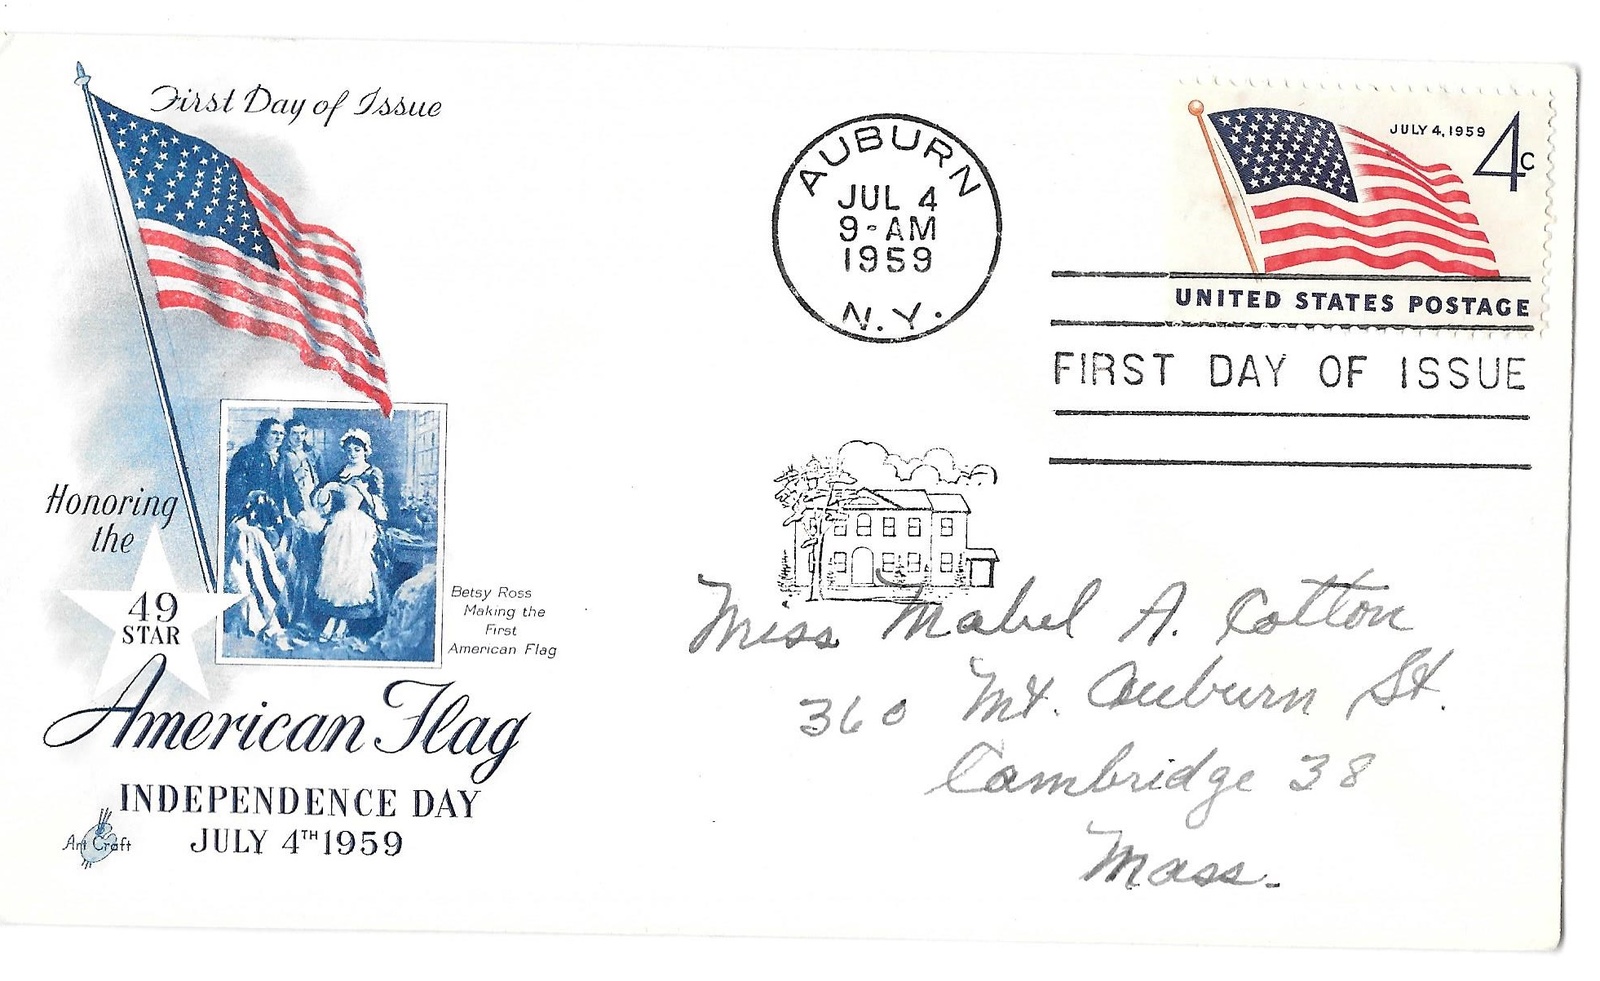 First Day of Issue
Honoring
the
49
STAR
American Flag
INDEPENDENCE DAY
JULY 4TH 1959
Art Craft
Betsy Ross
Making the
First
American Flag
AUBURN
JUL 4
9-AM
1959
N.Y.
JULY 4, 1959 4c
UNITED STATES POSTAGE
FIRST DAY OF ISSUE
Miss Mabel A. Cotton
360 Mt. Auburn St.
Cambridge 38
Mass.